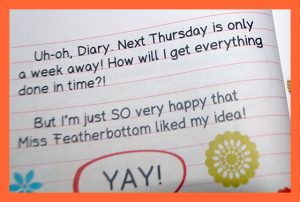 Uh-oh, Diary. Next Thursday is only
a week away! How will I get everything
done in time?!
But I'm just SO very happy that
Miss Featherbottom liked my idea!
YAY!